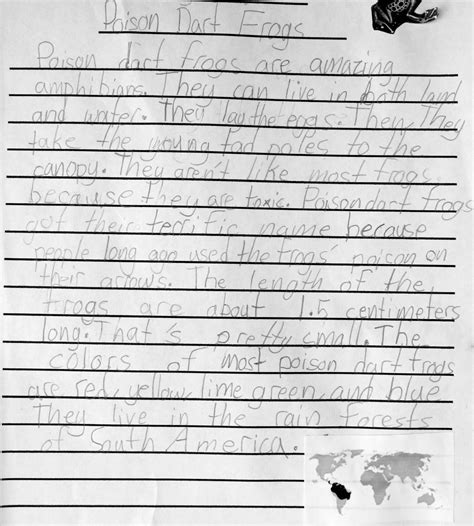 Poison Dart Frogs
Poison dart frogs are amazing
amphibians. They can live in both land
and water. They lay the eggs. Then, They
take the young tad poles to the
canopy. They aren't like most frogs,
because they are toxic. Poison dart frogs
got their terrific name because
people long ago used the frogs' poison on
their arrows. The length of the
frogs are about 1.5 centimeters
long. That's pretty small. The
colors of most poison dart frogs
are red, yellow, lime green, and blue
They live in the rain forests
of South America.